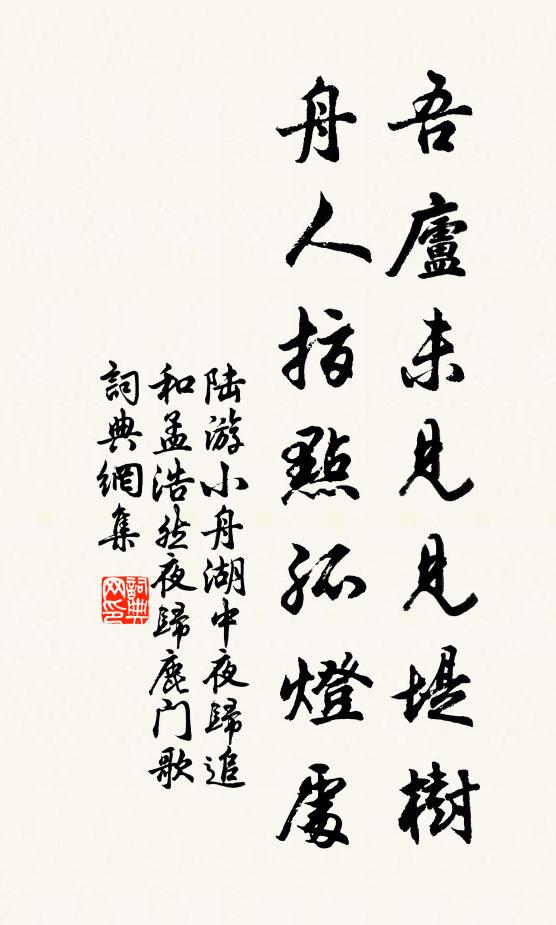 吾廬未見見堤樹
舟人指點孤燈處
陆游小舟湖中夜歸追
和孟浩然夜歸鹿门歌
詞典網集
詞典网印